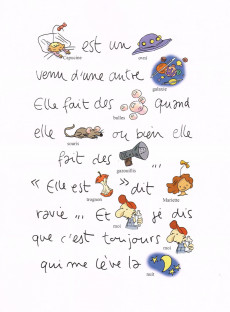 est un
Capucine
ovni
venu d'une autre
galaxie
Elle fait des quand
bulles
elle ou bien elle
souris
fait des ...
gazouillis
« Elle est » dit
trognon
Mariette
ravie ... Et je dis
moi
que c'est toujours
moi
qui me lève la
nuit